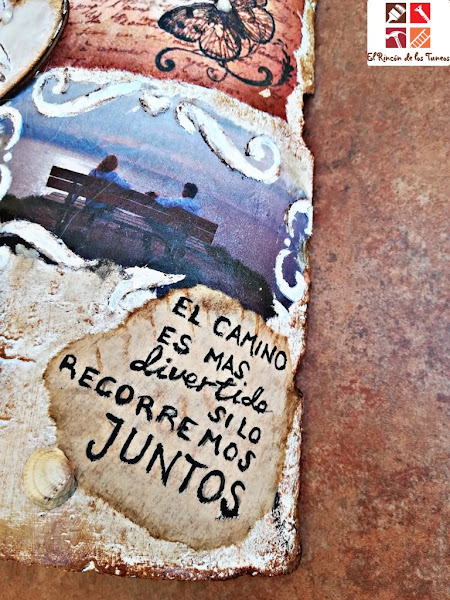 El Rincón de los Tuneos
EL CAMINO
ES MAS
divertido
SI LO
RECORREMOS
JUNTOS